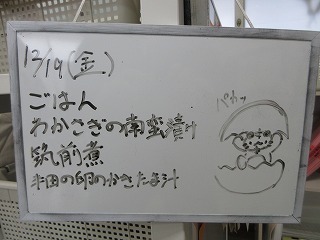 12/19(金)
ごはん
わかさぎの南蛮漬け
筑前煮
半田の卵のかきたま汁
パカッ